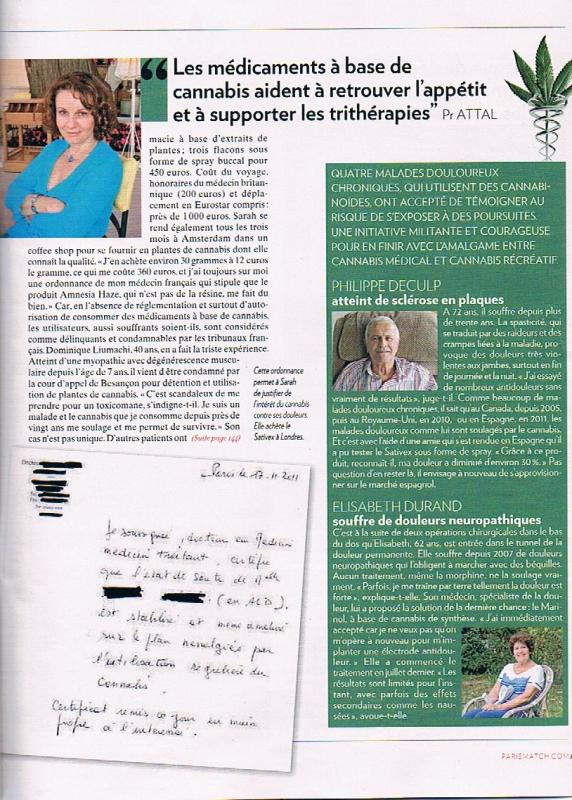 “Les médicaments à base de
cannabis aident à retrouver l’appétit
et à supporter les trithérapies” Pr ATTAL
macie à base d’extraits de
plantes ; trois flacons sous
forme de spray buccal pour
450 euros. Coût du voyage,
honoraires du médecin britan-
nique (200 euros) et dépla-
cement en Eurostar compris :
près de 1 000 euros. Sarah se
rend également tous les trois
mois à Amsterdam dans un
coffee shop pour se fournir en plantes de cannabis dont elle
connaît la qualité. « J’en achète environ 30 grammes à 12 euros
le gramme, ce qui me coûte 360 euros, et j’ai toujours sur moi
une ordonnance de mon médecin français qui stipule que le
produit Amnesia Haze, qui n’est pas de la résine, me fait du
bien. » Car, en l’absence de réglementation et surtout d’auto-
risation de consommer des médicaments à base de cannabis,
les utilisateurs, aussi souffrants soient-ils, sont considérés
comme délinquants et condamnables par les tribunaux fran-
çais. Dominique Liumachi, 40 ans, en a fait la triste expérience.
Atteint d’une myopathie avec dégénérescence muscu-
laire depuis l’âge de 7 ans, il vient d’être condamné par
la cour d’appel de Besançon pour détention et utilisa-
tion de plantes de cannabis. « C’est scandaleux de me
prendre pour un toxicomane, s’indigne-t-il. Je suis un
malade et le cannabis que je consomme depuis près de
vingt ans me soulage et me permet de survivre. » Son
cas n’est pas unique. D’autres patients ont (Suite page 144)
Cette ordonnance
permet à Sarah
de justifier de
l’intérêt du cannabis
contre ses douleurs.
Elle achète le
Sativex à Londres.
Paris le 17-11-2011
Je soussignée, docteur en Médecine
médecin traitant, certifie
que l’état de santé de Melle
(en ALD).
est stabilisé et même amélioré
sur le plan névralgies par
l’utilisation régulière du
Cannabis.
Certificat remis ce jour en main
propre à l’intéressée.
QUATRE MALADES DOULOUREUX
CHRONIQUES, QUI UTILISENT DES CANNABI-
NOÏDES, ONT ACCEPTÉ DE TÉMOIGNER AU
RISQUE DE S’EXPOSER À DES POURSUITES.
UNE INITIATIVE MILITANTE ET COURAGEUSE
POUR EN FINIR AVEC L’AMALGAME ENTRE
CANNABIS MÉDICAL ET CANNABIS RÉCRÉATIF.
PHILIPPE DECULP
atteint de sclérose en plaques
A 72 ans, il souffre depuis plus
de trente ans. La spasticité, qui
se traduit par des raideurs et des
crampes liées à la maladie, pro-
voque des douleurs très vio-
lentes aux jambes, surtout en fin
de journée et la nuit. « J’ai essayé
de nombreux antidouleurs sans
vraiment de résultats », juge-t-il. Comme beaucoup de ma-
lades douloureux chroniques, il sait qu’au Canada, depuis 2005,
puis au Royaume-Uni, en 2010, ou en Espagne, en 2011, les
malades douloureux comme lui sont soulagés par le cannabis.
Et c’est avec l’aide d’une amie qui s’est rendue en Espagne qu’il
a pu tester le Sativex sous forme de spray. « Grâce à ce
produit, reconnaît-il, ma douleur a diminué d’environ 30 %. » Pas
question d’en rester là, il envisage à nouveau de s’approvision-
ner sur le marché espagnol.
ELISABETH DURAND
souffre de douleurs neuropathiques
C’est à la suite de deux opérations chirurgicales dans le bas
du dos qu’Elisabeth, 62 ans, est entrée dans le tunnel de la
douleur permanente. Elle souffre depuis 2007 de douleurs
neuropathiques qui l’obligent à marcher avec des béquilles.
Aucun traitement, même la morphine, ne la soulage vrai-
ment. « Parfois, je me traîne par terre tellement la douleur est
forte », explique-t-elle. Son médecin, spécialiste de la dou-
leur, lui a proposé la solution de la dernière chance : le Mari-
nol, à base de cannabis de synthèse. « J’ai immédiatement
accepté car je ne veux pas qu’on
m’opère à nouveau pour m’im-
planter une électrode antidou-
leur. » Elle a commencé le
traitement en juillet dernier. « Les
résultats sont limités pour l’ins-
tant, avec parfois des effets
secondaires comme les nau-
sées », avoue-t-elle.
PARISMATCH.COM